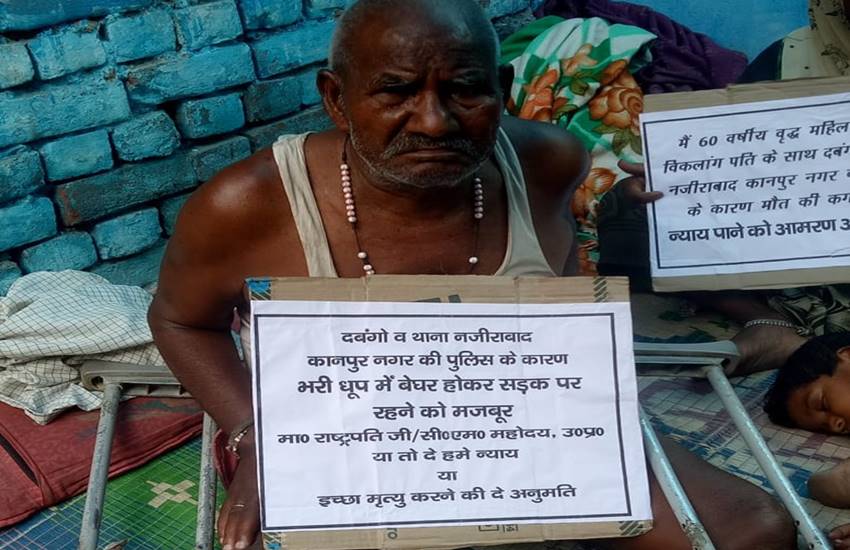 दबंगो व थाना नजीराबाद
कानपुर नगर की पुलिस के कारण
भरी धूप में बेघर होकर सड़क पर
रहने को मजबूर
मा० राष्ट्रपति जी/सी०एम० महोदय, उ०प्र०
या तो दे हमे न्याय
या
इच्छा मृत्यु करने की दे अनुमति
मैं 60 वर्षीय वृद्ध महिल
विकलांग पति के साथ दबं
नजीराबाद कानपुर नगर
के कारण मौत की कग
न्याय पाने को आमरण